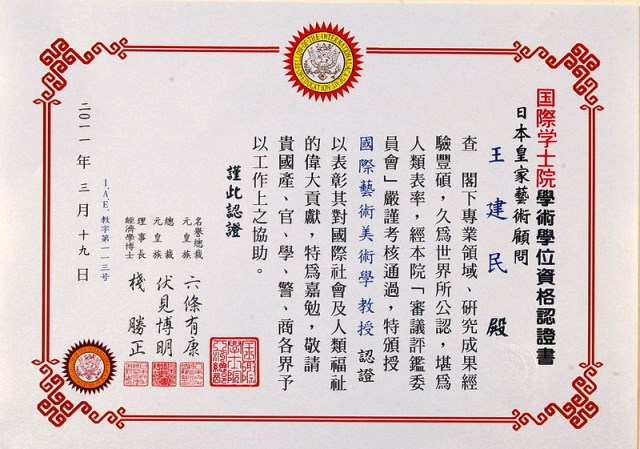 国際学士院學術學位資格認證書
日本皇家藝術顧問
王建民 殿
查 閣下專業領域、研究成果經
驗豐碩,久為世界所公認,堪為
人類表率,經本院「審議評鑑委
員會」嚴謹考核通過,特頒授
國際藝術美術學教授 認證
以表彰其對國際社會及人類福祉
的偉大貢獻,特為嘉勉,敬請
貴國產、官、學、警、商各界予
以工作上之協助。
謹此認證
名譽總裁
元皇族
六條有康
總裁
元皇族
伏見博明
理事長
經濟學博士
棧勝正
I.AE.教字第一一三号
二○一一年三月十九日